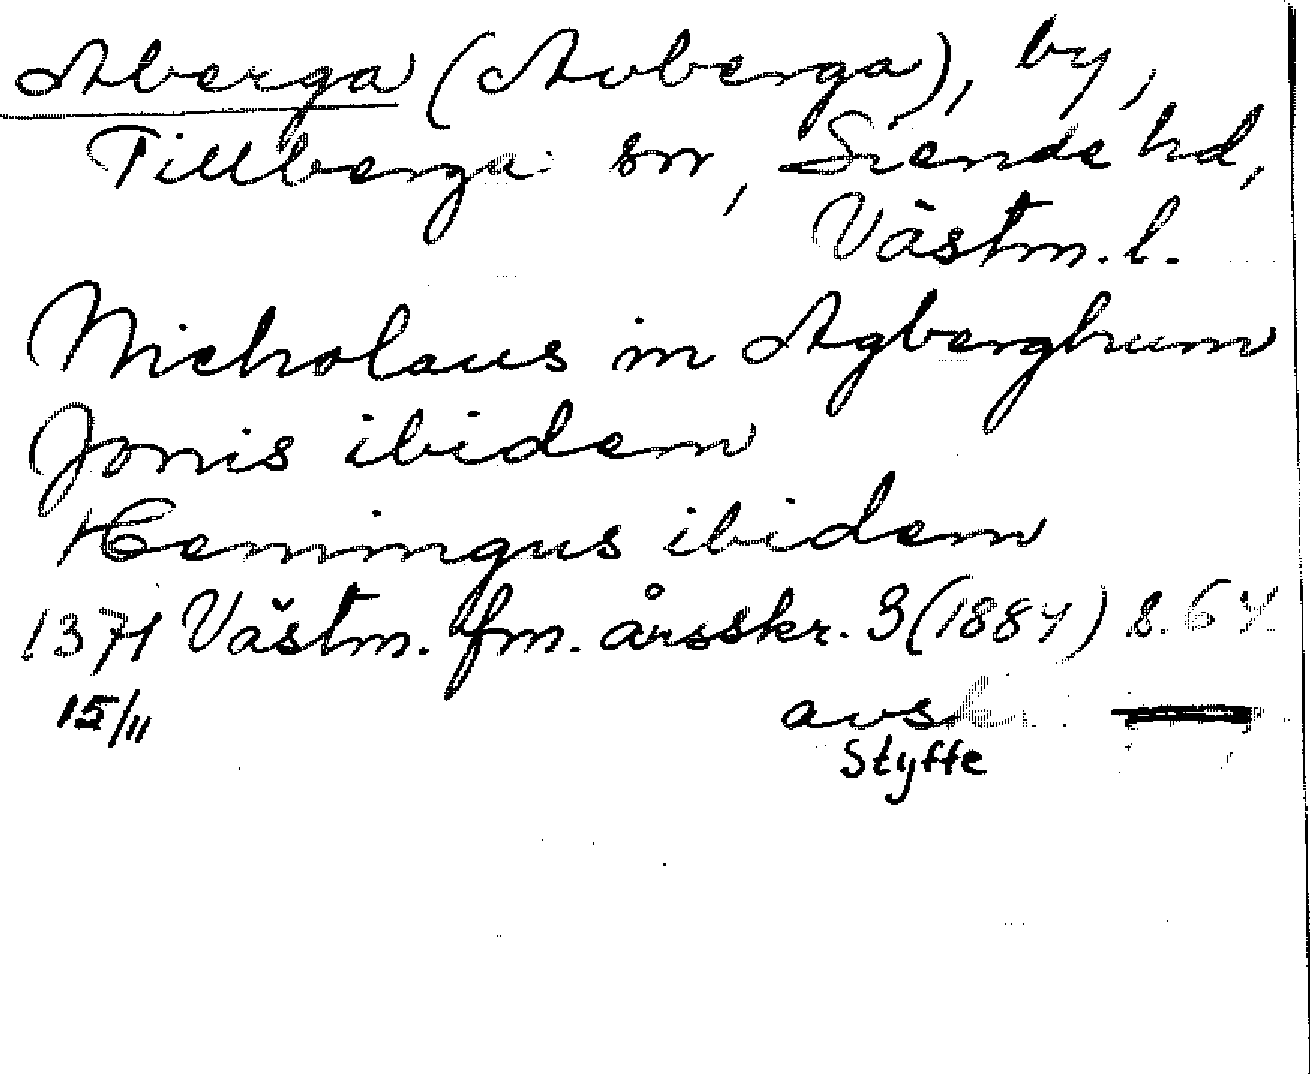 Aberga (Avberga), by,
Tillberga sn, Siende hd,
Västm. l.
Nicholaus in Agberghum
Jonis ibidem
Hemingus ibidem
1371 Västm. fm. årsskr. 3 (1884) s. 64
15/11 avskr.
Styffe